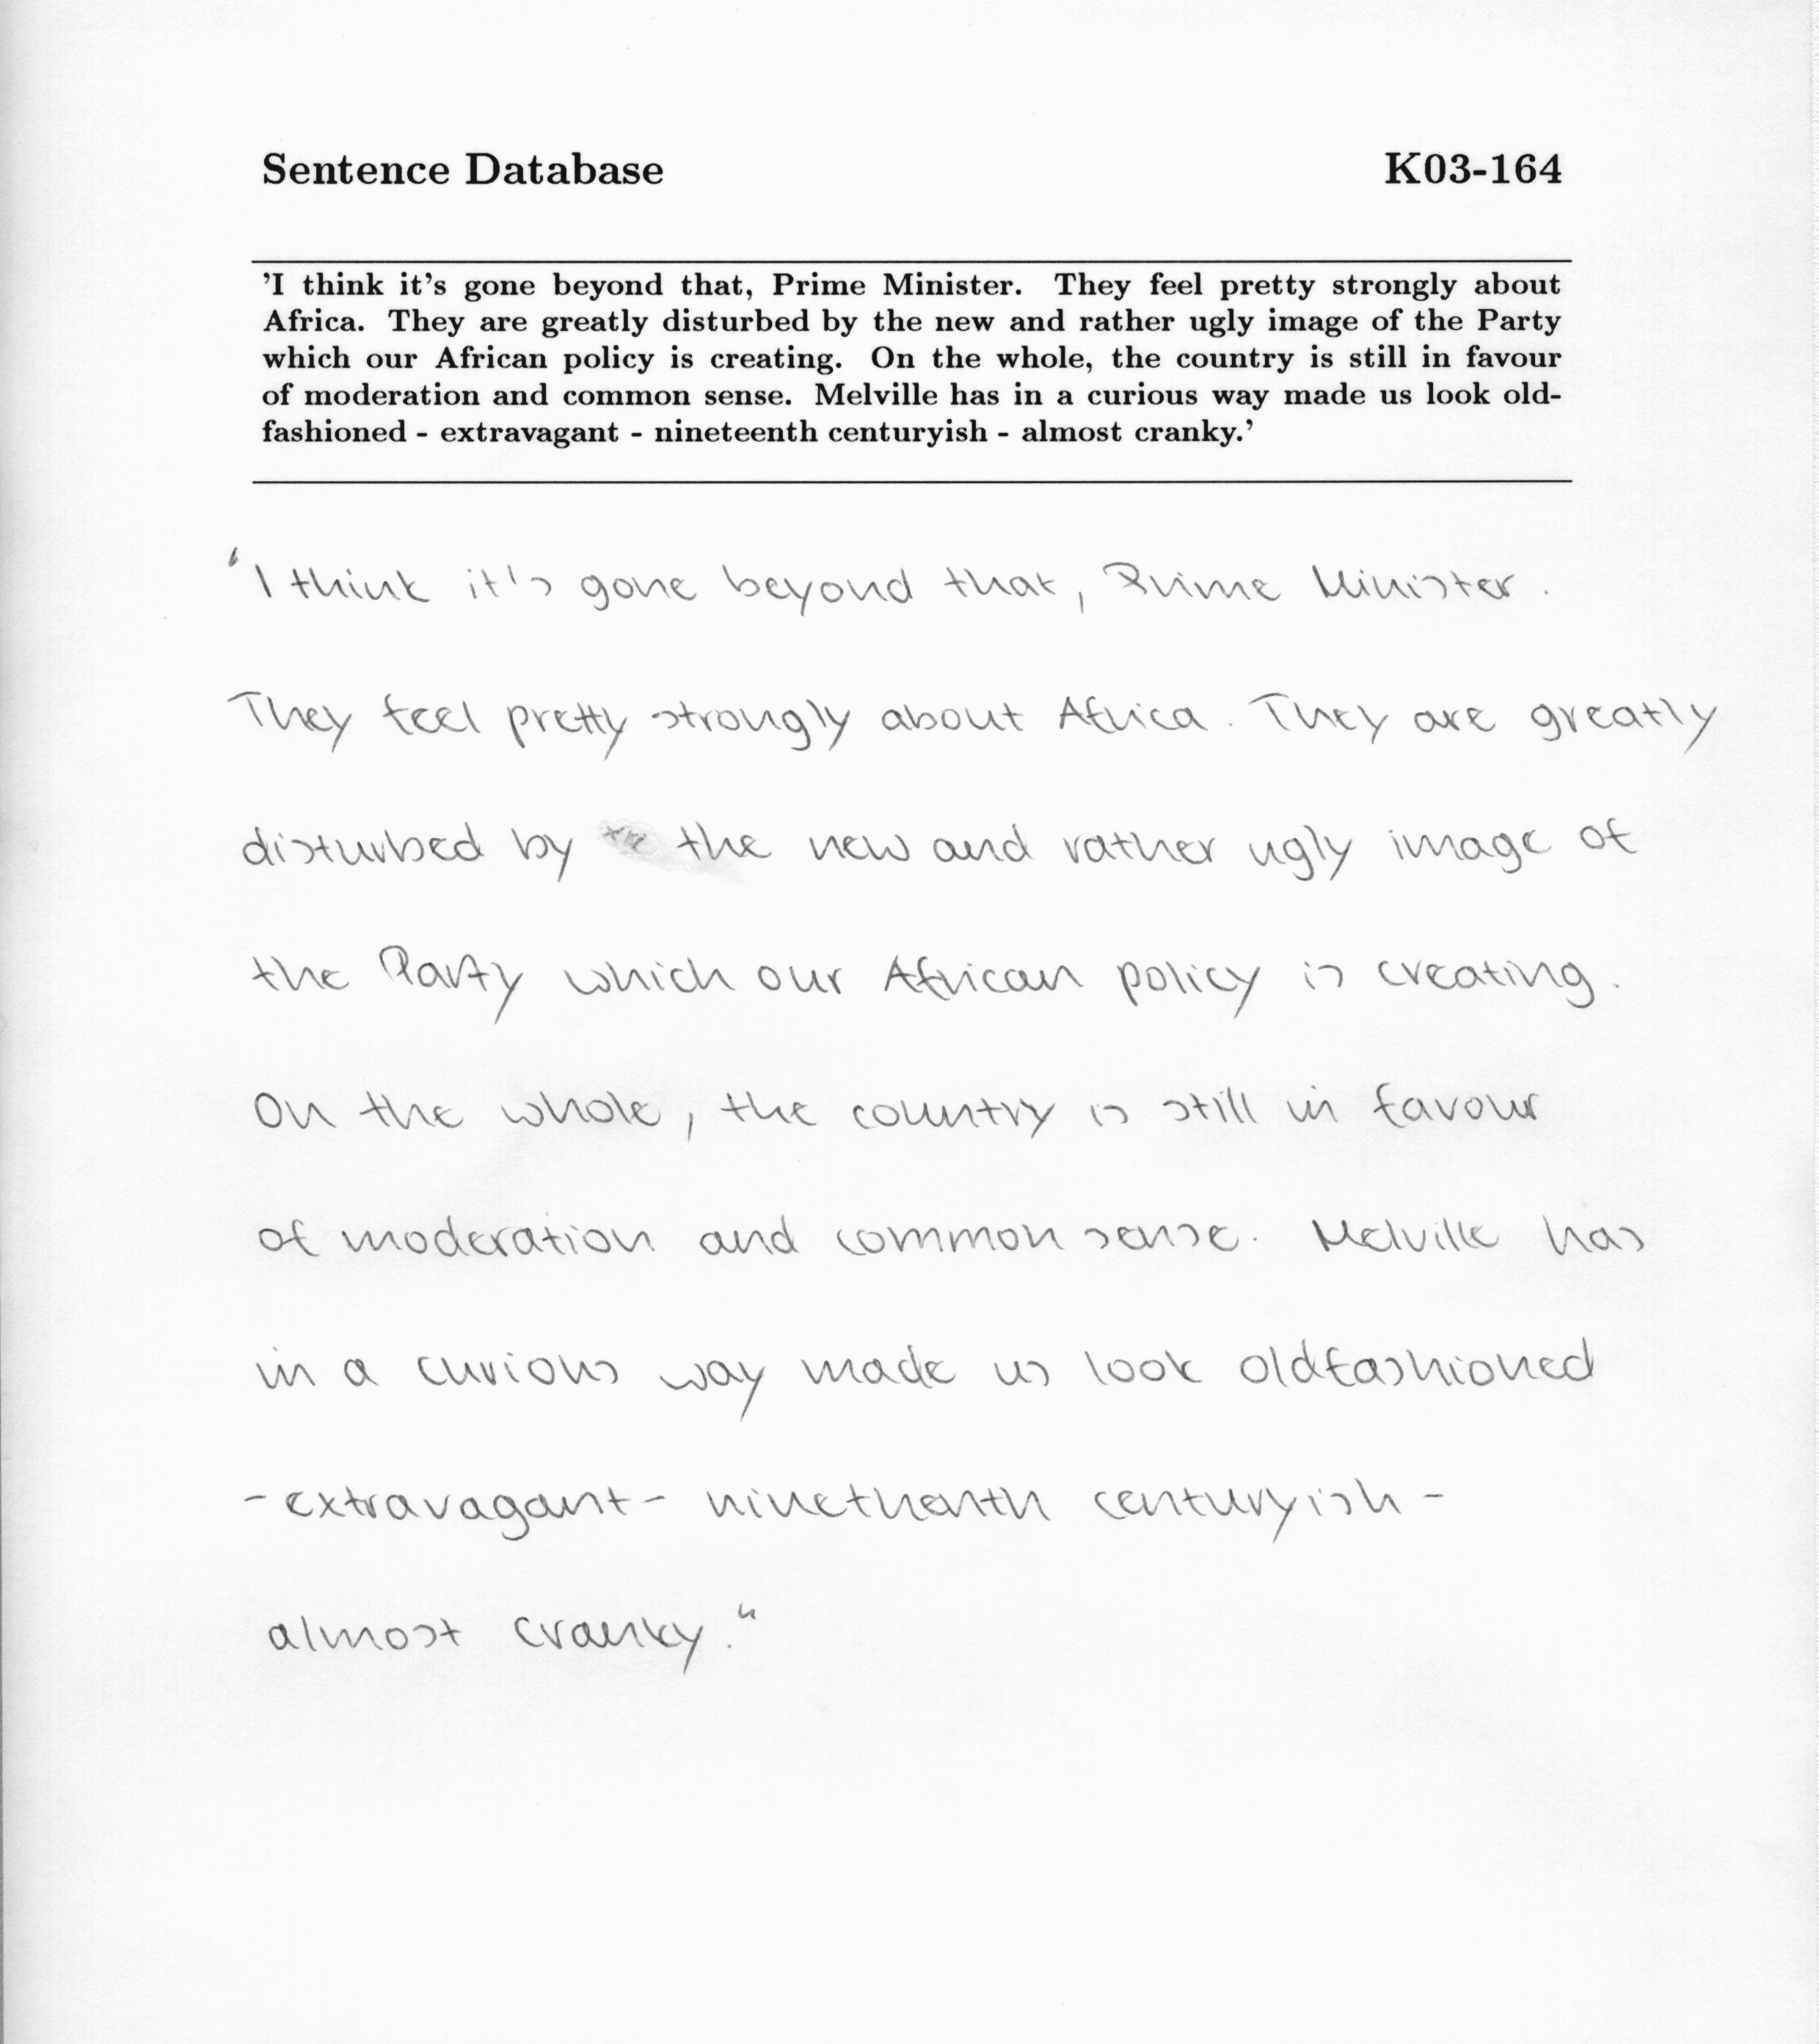 Sentence Database K03-164
'I think it's gone beyond that, Prime Minister. They feel pretty strongly about
Africa. They are greatly disturbed by the new and rather ugly image of the Party
which our African policy is creating. On the whole, the country is still in favour
of moderation and common sense. Melville has in a curious way made us look old-
fashioned - extravagant - nineteenth centuryish - almost cranky.'
'I think it's gone beyond that, Prime Minister.
They feel pretty strongly about Africa. They are greatly
disturbed by the new and rather ugly image of
the Party which our African policy is creating.
On the whole, the country is still in favour
of moderation and common sense. Melville has
in a curious way made us look oldfashioned
- extravagant - ninethenth centuryish -
almost cranky."